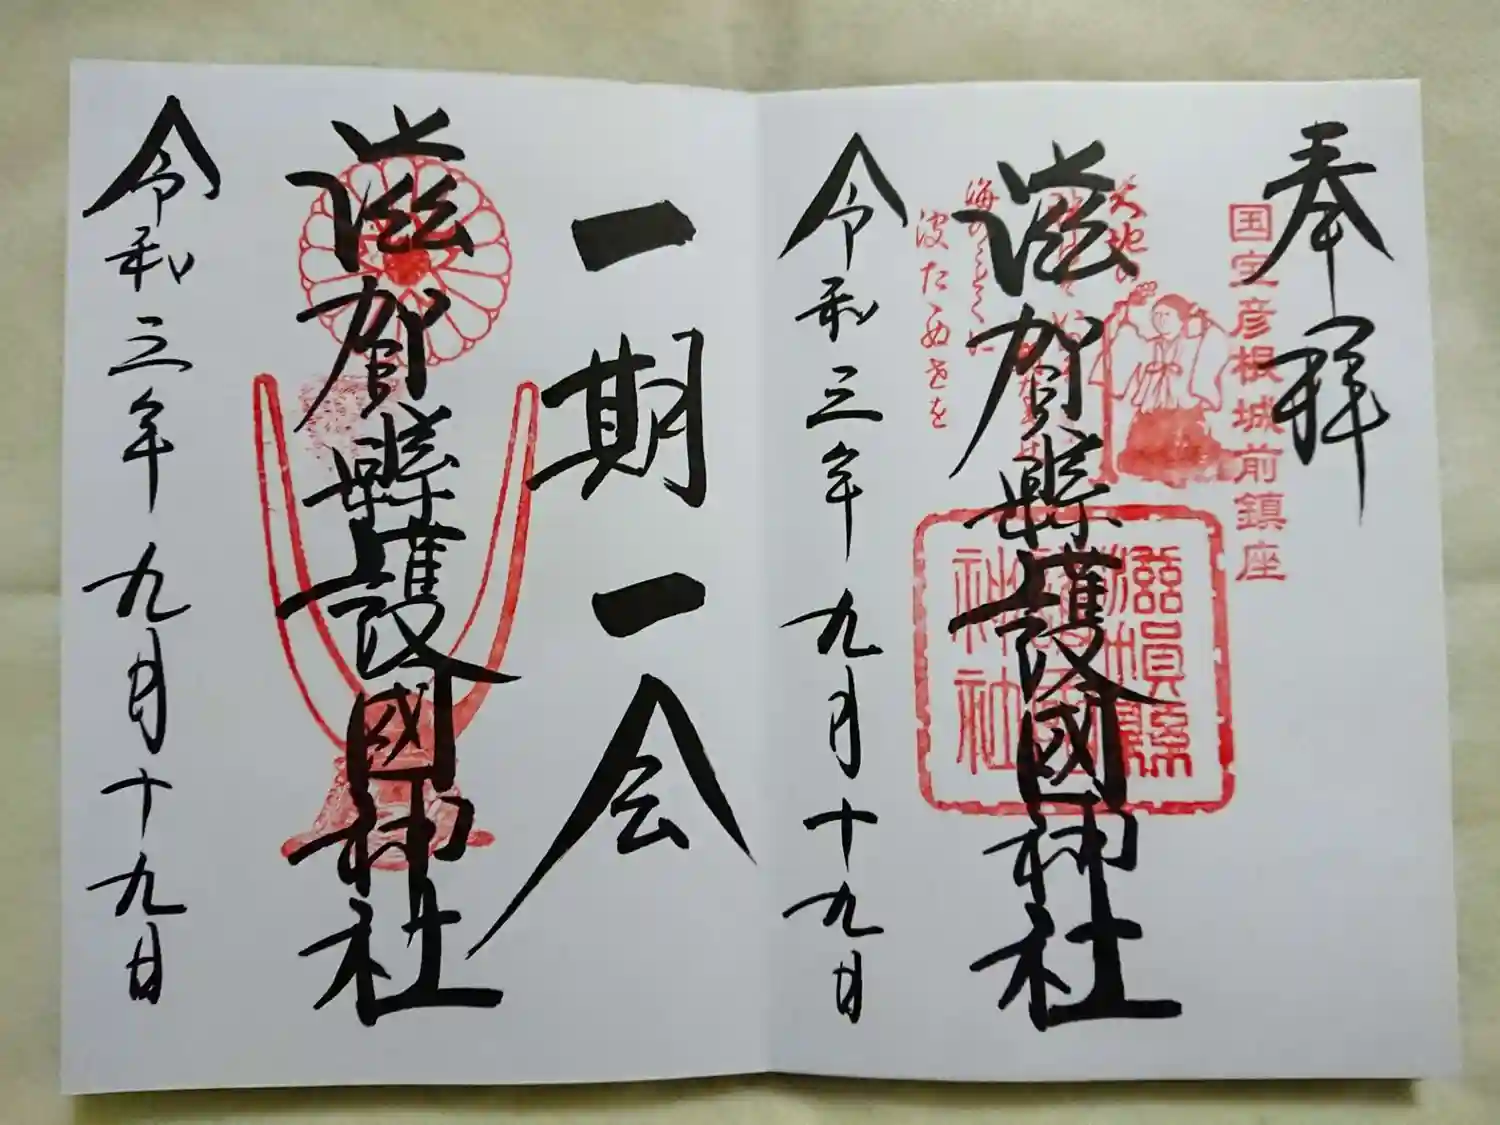 奉拝
国宝彦根城前鎮座
滋賀縣護國神社
波たゝぬ世を
令和三年九月十九日
一期一会
滋賀縣護國神社
令和三年九月十九日